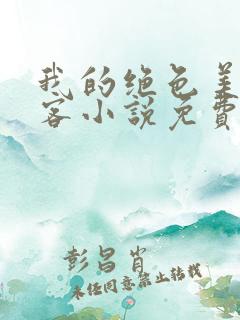 我的绝色美
客小说免费
彭昌肖
未经同意禁止转载